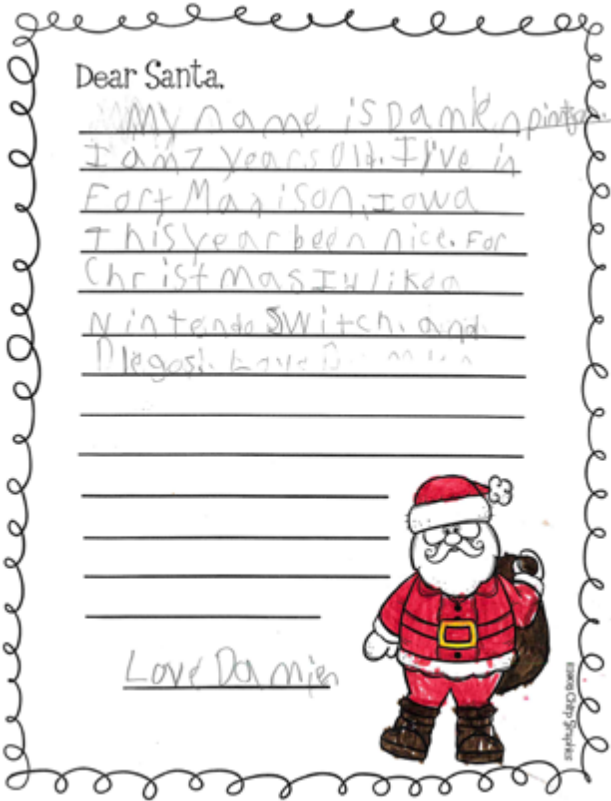 Dear Santa,
My name is Damien
I am 7 years old. I live in
Fort Madison, Iowa
This year been nice. For
Christmas I'd like a
Nintendo Switch. and
legos. Love
Love Damien